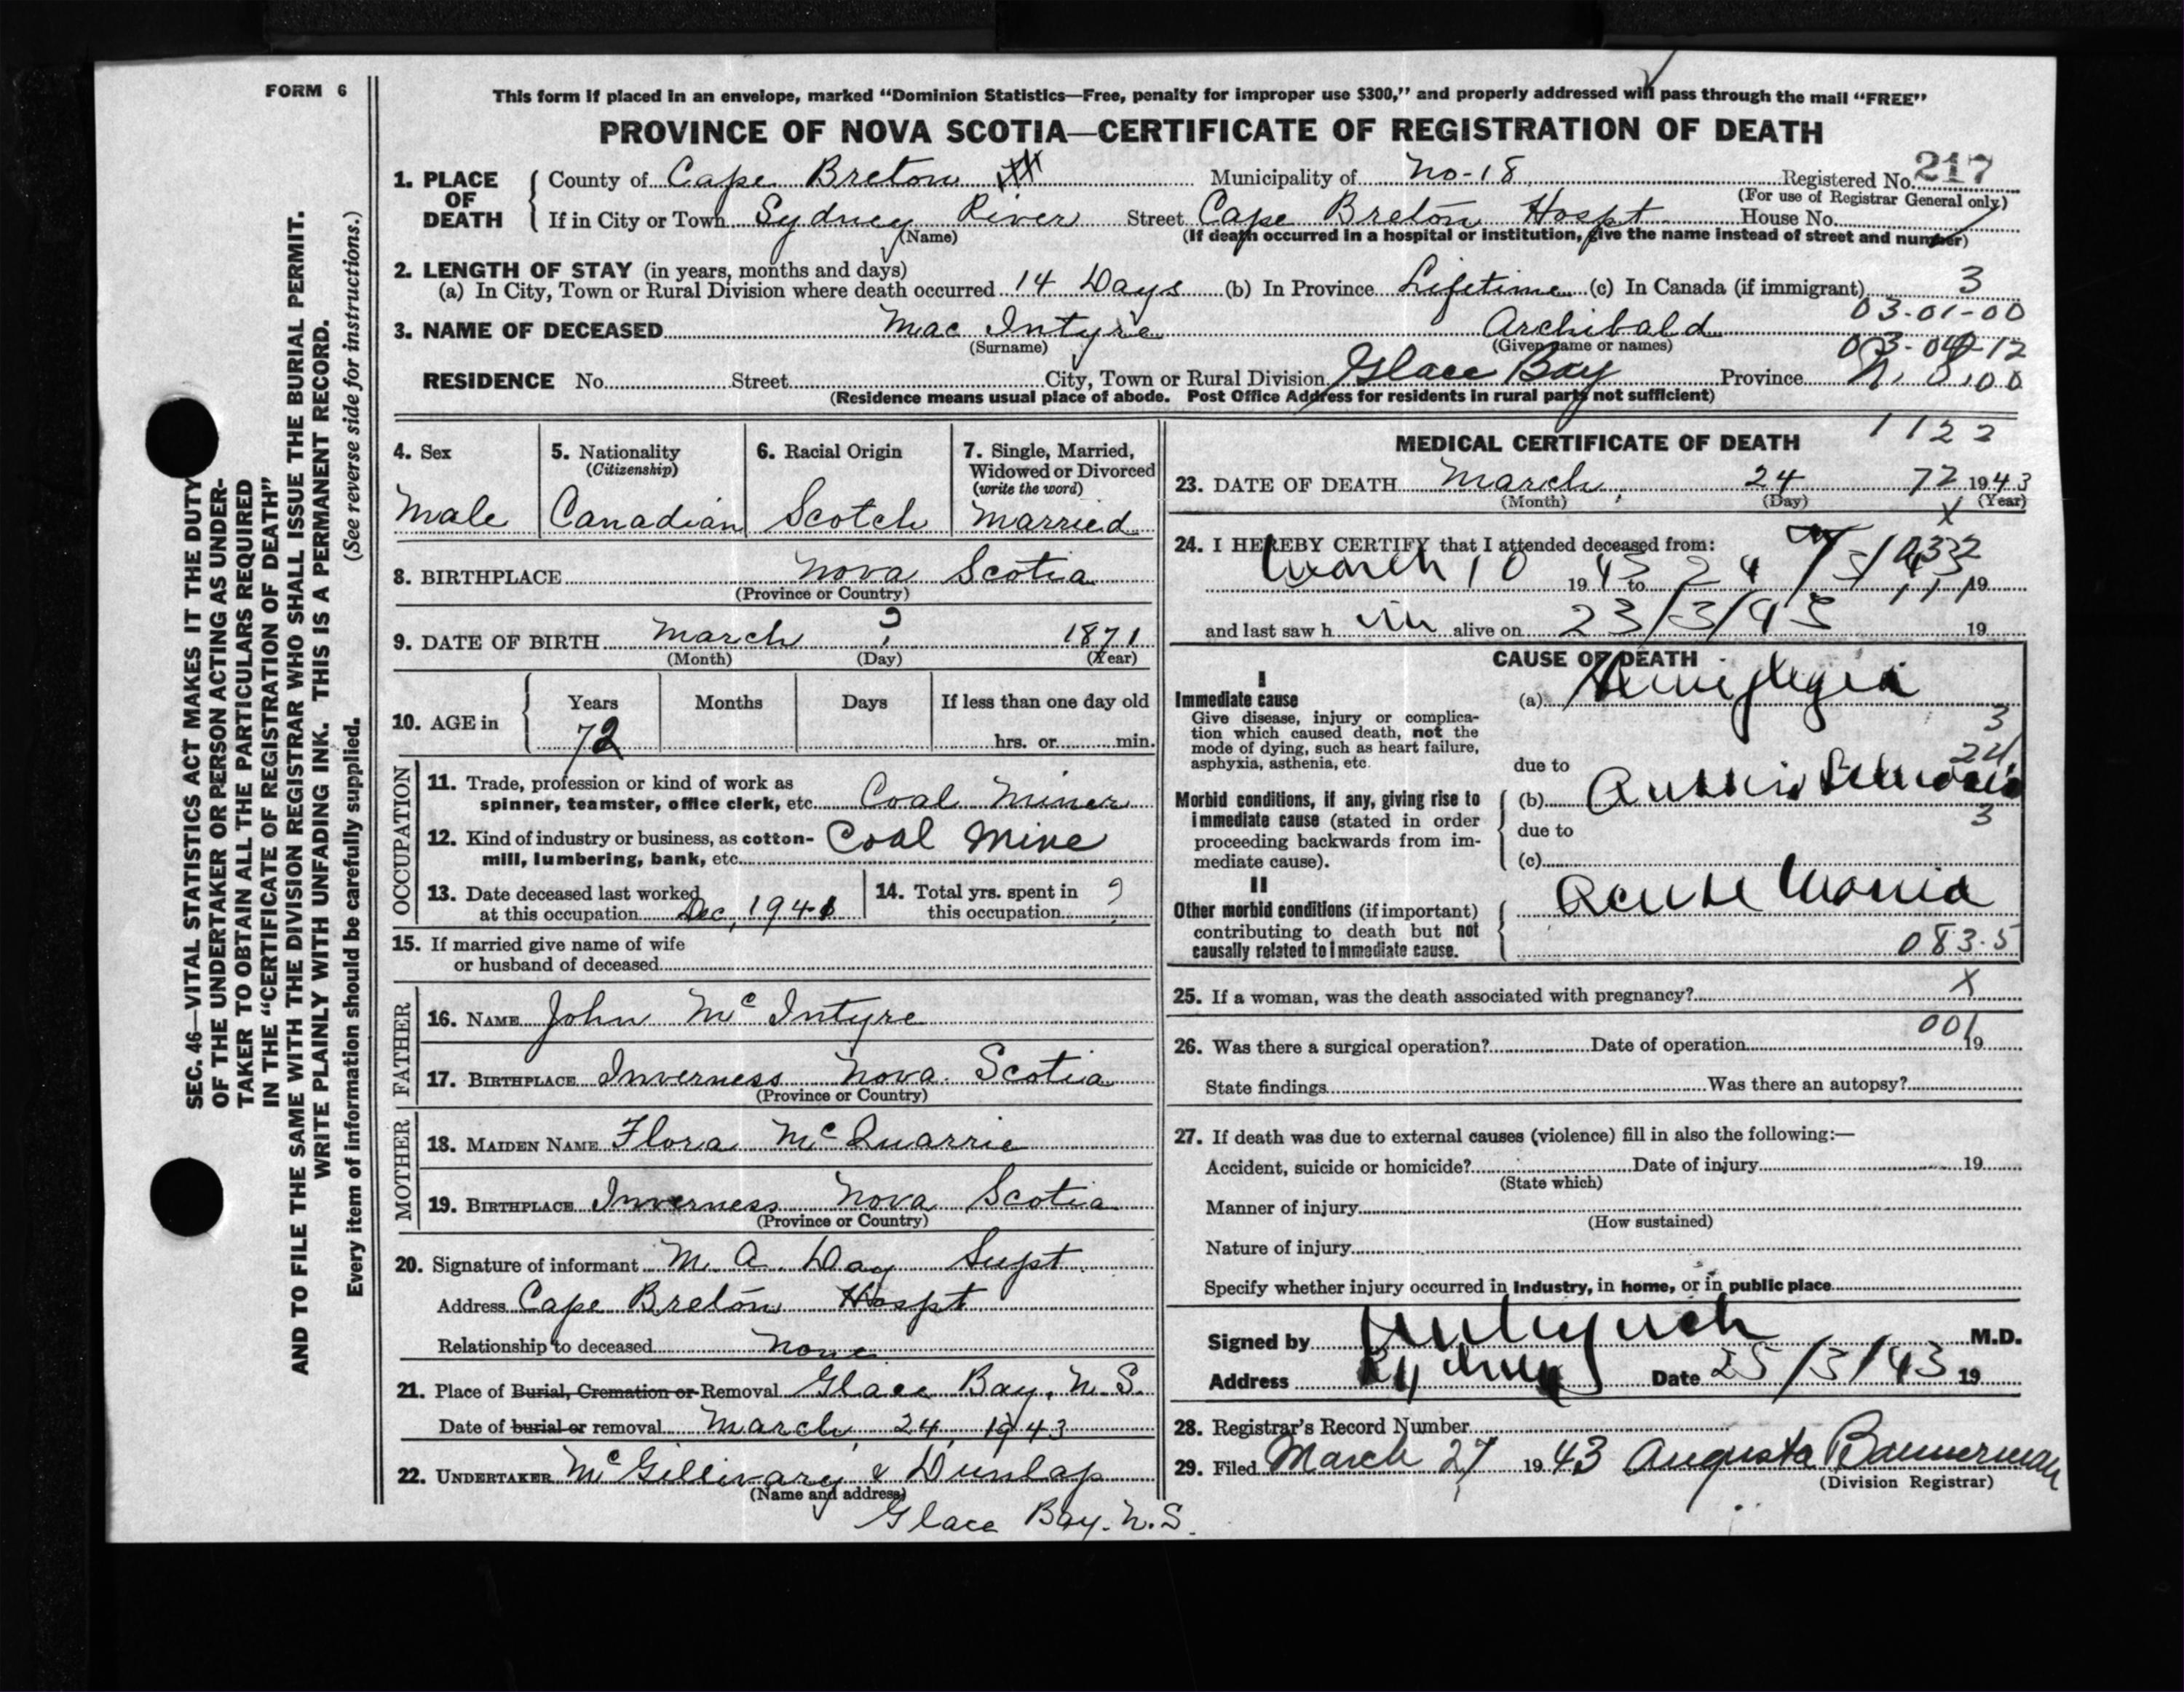 FORM 6
This form if placed in an envelope, marked “Dominion Statistics—Free, penalty for improper use $300,” and properly addressed will pass through the mail “FREE”
PROVINCE OF NOVA SCOTIA—CERTIFICATE OF REGISTRATION OF DEATH
1. PLACE OF DEATH
County of Cape Breton Municipality of No-18 Registered No. 217
(For use of Registrar General only)
If in City or Town Sydney River Street Cape Breton Hospt House No.
(Name) (If death occurred in a hospital or institution, give the name instead of street and number)
2. LENGTH OF STAY (in years, months and days)
(a) In City, Town or Rural Division where death occurred 14 Days (b) In Province Lifetime (c) In Canada (if immigrant) 3
03-01-00
3. NAME OF DECEASED Mac Intyre Archibald
(Surname) (Given name or names)
RESIDENCE No. Street City, Town or Rural Division Glace Bay Province N. S.
(Residence means usual place of abode. Post Office Address for residents in rural parts not sufficient)
4. Sex
Male
5. Nationality
(Citizenship)
Canadian
6. Racial Origin
Scotch
7. Single, Married,
Widowed or Divorced
(write the word)
Married
8. BIRTHPLACE Nova Scotia
(Province or Country)
9. DATE OF BIRTH March ? 1871
(Month) (Day) (Year)
10. AGE in
Years Months Days If less than one day old
72 hrs. or min.
OCCUPATION
11. Trade, profession or kind of work as
spinner, teamster, office clerk, etc. Coal Miner
12. Kind of industry or business, as cotton-
mill, lumbering, bank, etc. Coal Mine
13. Date deceased last worked
at this occupation Dec, 1941
14. Total yrs. spent in
this occupation ?
15. If married give name of wife
or husband of deceased
FATHER
16. NAME John Mc Intyre
17. BIRTHPLACE Inverness Nova Scotia
(Province or Country)
MOTHER
18. MAIDEN NAME Flora Mc Quarrie
19. BIRTHPLACE Inverness Nova Scotia
(Province or Country)
20. Signature of informant M. A. Day Supt.
Address Cape Breton Hospt
Relationship to deceased None
21. Place of Burial, Cremation or Removal Glace Bay, N. S.
Date of burial or removal March, 24, 1943
22. UNDERTAKER Mc Gillivary & Dunlap
(Name and address)
Glace Bay. N.S.
1122
MEDICAL CERTIFICATE OF DEATH
23. DATE OF DEATH March, 24 72 1943
(Month) (Day) (Year)
X
24. I HEREBY CERTIFY that I attended deceased from:
March 10 19 43 to 24 19
and last saw h im alive on 23/3/43 19
CAUSE OF DEATH
I
Immediate cause
Give disease, injury or complica-
tion which caused death, not the
mode of dying, such as heart failure,
asphyxia, asthenia, etc.
(a) Hemiplegia
3
24
due to
Morbid conditions, if any, giving rise to
immediate cause (stated in order
proceeding backwards from im-
mediate cause).
(b)
3
due to
(c)
II
Other morbid conditions (if important)
contributing to death but not
causally related to immediate cause.
Acute Mania
083.5
25. If a woman, was the death associated with pregnancy? X
001
26. Was there a surgical operation? Date of operation 19
State findings Was there an autopsy?
27. If death was due to external causes (violence) fill in also the following:—
Accident, suicide or homicide? Date of injury 19
(State which)
Manner of injury
(How sustained)
Nature of injury
Specify whether injury occurred in Industry, in home, or in public place
Signed by M.D.
Address Sydney Date 25/3/43 19
28. Registrar's Record Number
29. Filed March 27 19 43 Augusta Bannerman
(Division Registrar)
SEC. 46—VITAL STATISTICS ACT MAKES IT THE DUTY
OF THE UNDERTAKER OR PERSON ACTING AS UNDER-
TAKER TO OBTAIN ALL THE PARTICULARS REQUIRED
IN THE “CERTIFICATE OF REGISTRATION OF DEATH”
AND TO FILE THE SAME WITH THE DIVISION REGISTRAR WHO SHALL ISSUE THE BURIAL PERMIT.
WRITE PLAINLY WITH UNFADING INK. THIS IS A PERMANENT RECORD.
Every item of information should be carefully supplied. (See reverse side for instructions.)